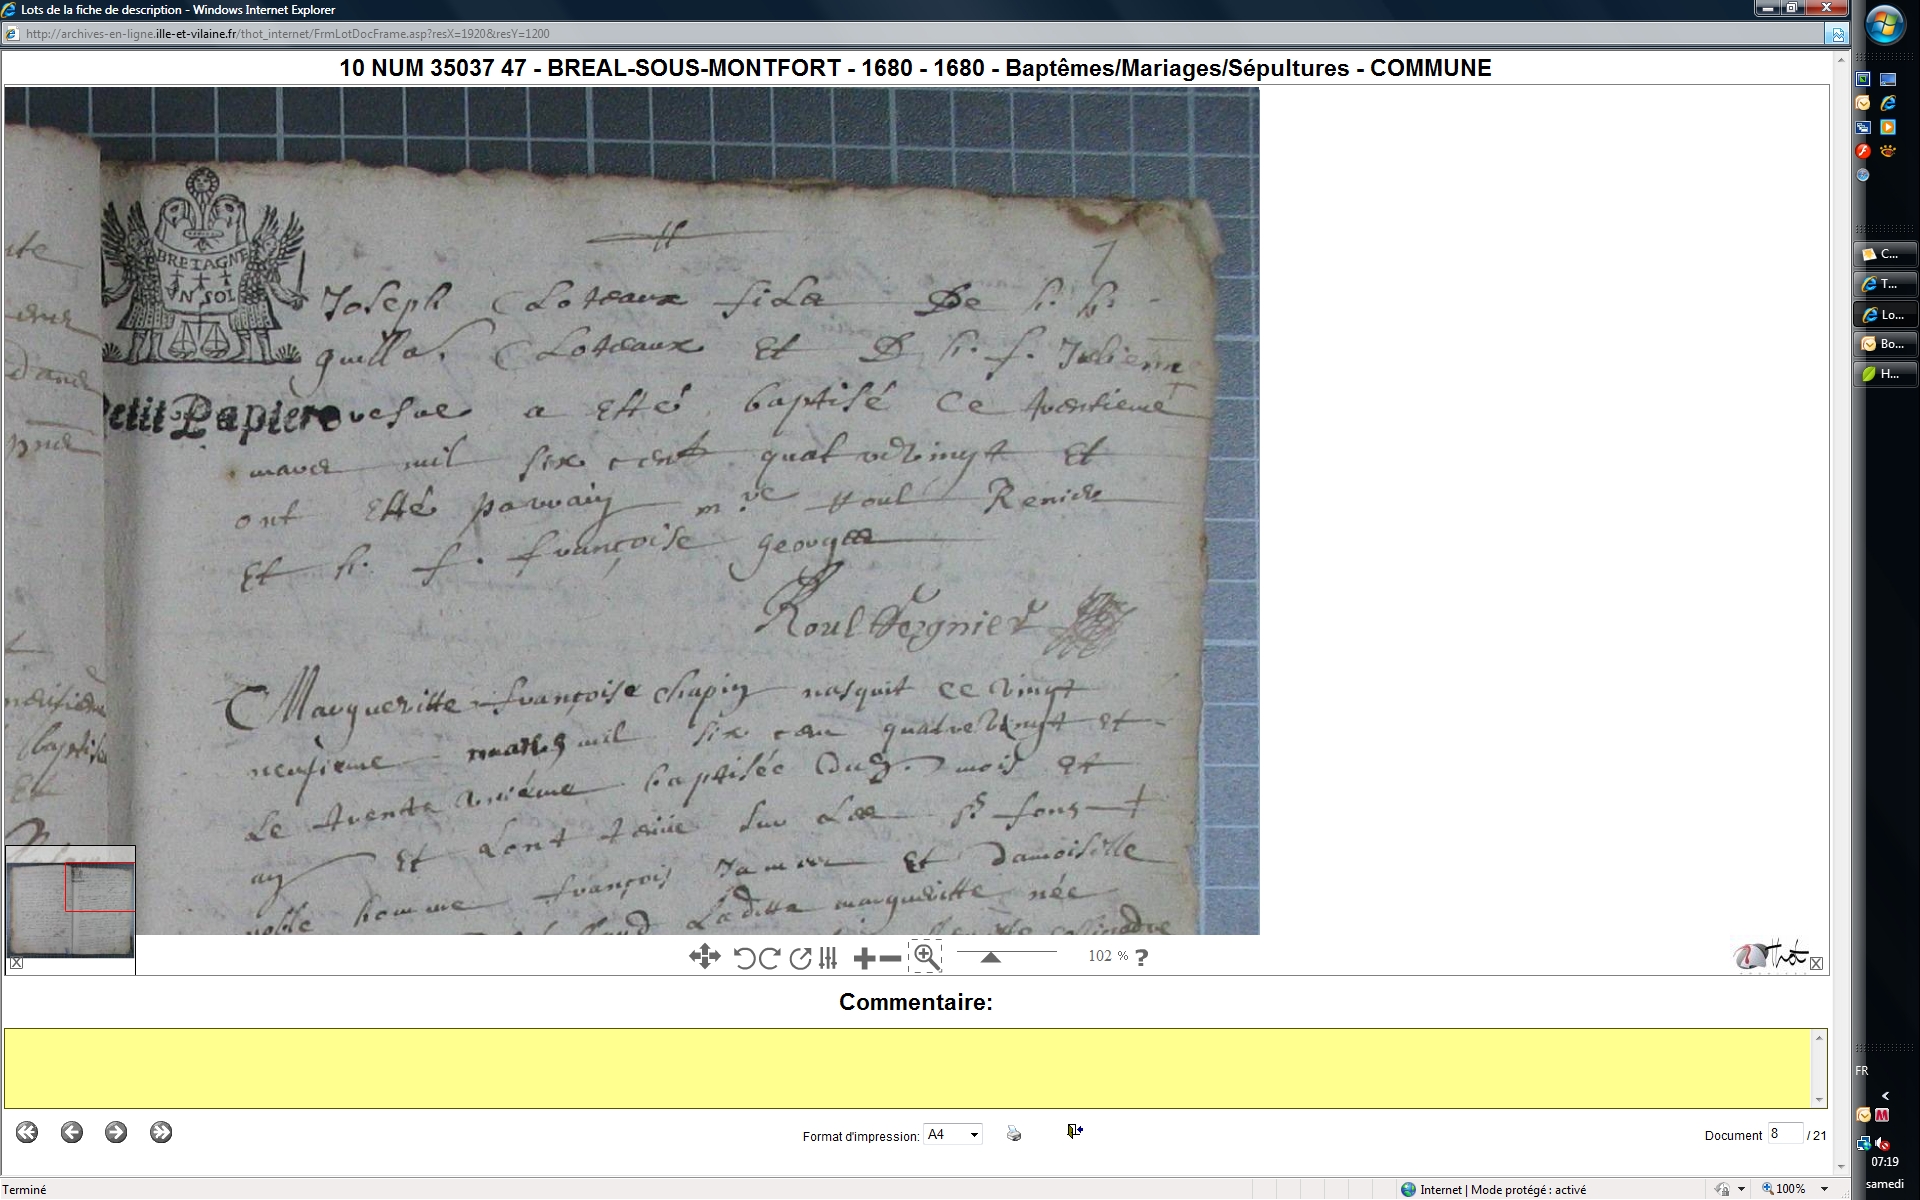 Lots de la fiche de description - Windows Internet Explorer
http://archives-en-ligne.ille-et-vilaine.fr/thot_internet/FrmLotDocFrame.asp?resX=1920&resY=1200
10 NUM 35037 47 - BREAL-SOUS-MONTFORT - 1680 - 1680 - Baptêmes/Mariages/Sépultures - COMMUNE
BRETAGNE
VN SOL
Petit Papier
7
Joseph Loteaux fils De h. h.
guill. Loteaux Et D h. f. Julienne
a esté baptisé Ce trentieme
mars mil six cent quatrevingt Et
ont esté parrain Roul Renier
Et h. f. françoise george
Roul Regnier
Margueritte françoise chapin nasquit ce vingt
neufieme mars mil six cen quatrevingt et
Le trente uniéme baptisée Dud. mois et
an Et Lont tenüe sur Les st fons
noble homme françois Et damoiselle
Laditte margueritte née
102 %
?
Thot
Commentaire:
Format d'impression: A4
Document 8 / 21
Terminé
Internet | Mode protégé : activé
100%
C...
T...
Lo...
Bo...
H...
FR
07:19
samedi